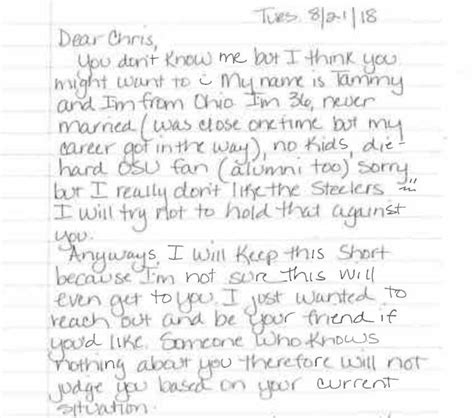 Tues. 8/21/18
Dear Chris,
You don't know me but I think you
might want to :) My name is Tammy
and I'm from Ohio. I'm 36, never
married (was close one time but my
career got in the way), no kids, die-
hard OSU fan (alumni too) sorry
but I really don't like the Steelers
I will try not to hold that against
you.
Anyways, I will keep this short
because I'm not sure this will
even get to you. I just wanted to
reach out and be your friend if
you'd like. Someone who knows
nothing about you therefore will not
judge you based on your current
situation.